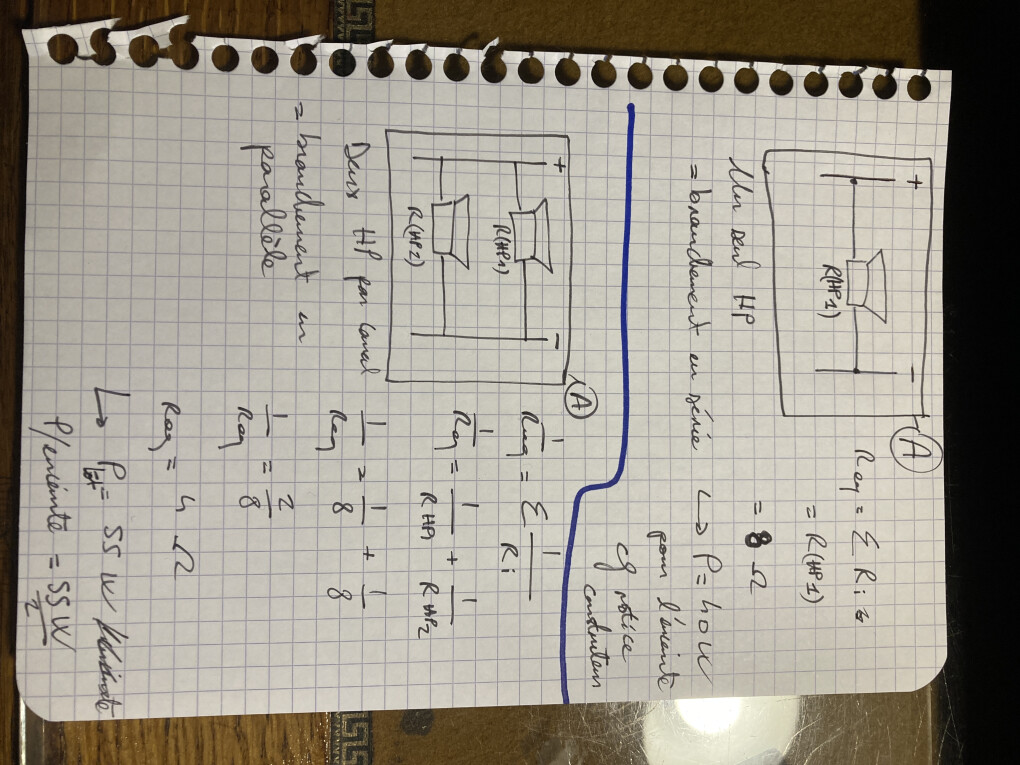 +
-
R(HP1)
A
Un seul HP
= branchement en série
Req = Σ Ri =
= R(HP1)
= 8 Ω
↳ P = 40 W
pour l'enceinte
cf notice
constructeur
+
-
R(HP1)
R(HP2)
A
Deux HP par canal
= branchement en
parallèle
1/Req = Σ 1/Ri
1/Req = 1/RHP1 + 1/RHP2
1/Req = 1/8 + 1/8
1/Req = 2/8
Req = 4 Ω
↳ Ptot = 55 W
P/enceinte = 55 W/2